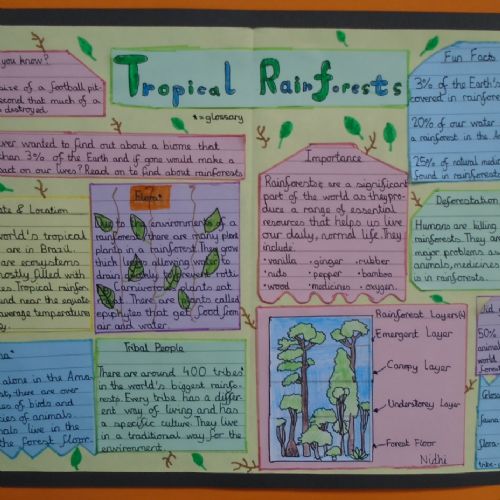 Tropical Rainforests
*=glossary
you know?
size of a football pit-
second that much of a
destroyed
ever wanted to find out about a biome that
than 3% of the Earth and if gone would make a
pact on our lives? Read on to find about rainforests
ate & Location
world's tropical
are in Brazil.
are ecosystems
mostly filled with
es. Tropical rainfor-
nd near the equato
average temperature
Flora*
Due to the environments of a
rainforest, there are many plant
plants in a rainforest. They grow
thick leaves allowing water to
drain to prevent rotti
Carniverous plants eat
There are plants called
epiphytes that get food from
air and water.
alone in the Ama-
est, there are over
cies of birds and
cies of animals
mals live in the
the forest floor.
Tribal People
There are around 400 tribes*
in the world's biggest rainfo-
rests. Every tribe has a differ-
ent way of living and has
a specific culture. They live
in a traditional way for the
environment.
Importance
Rainforests are a significant
part of the world as they pro-
duce a range of essential
resources that helps us live
our daily, normal life. They
include:
•vanilla •ginger •rubber
•nuts •pepper •bamboo
•wood •medicines •oxygen.
Rainforest Layer(s)
Emergent Layer
Canopy Layer
Understorey Layer
Forest Floor
Nidhi
Fun Facts
3% of the Earth's
covered in rainfore
20% of our water
a rainforest in the
25% of natural medi
found in rainforests
Deforestation
Humans are killing
rainforests. They are
major problems as
animals, medicines
is in rainforests.
50%
animal
world
forest
Gloss
fauna
flora-
tribe-